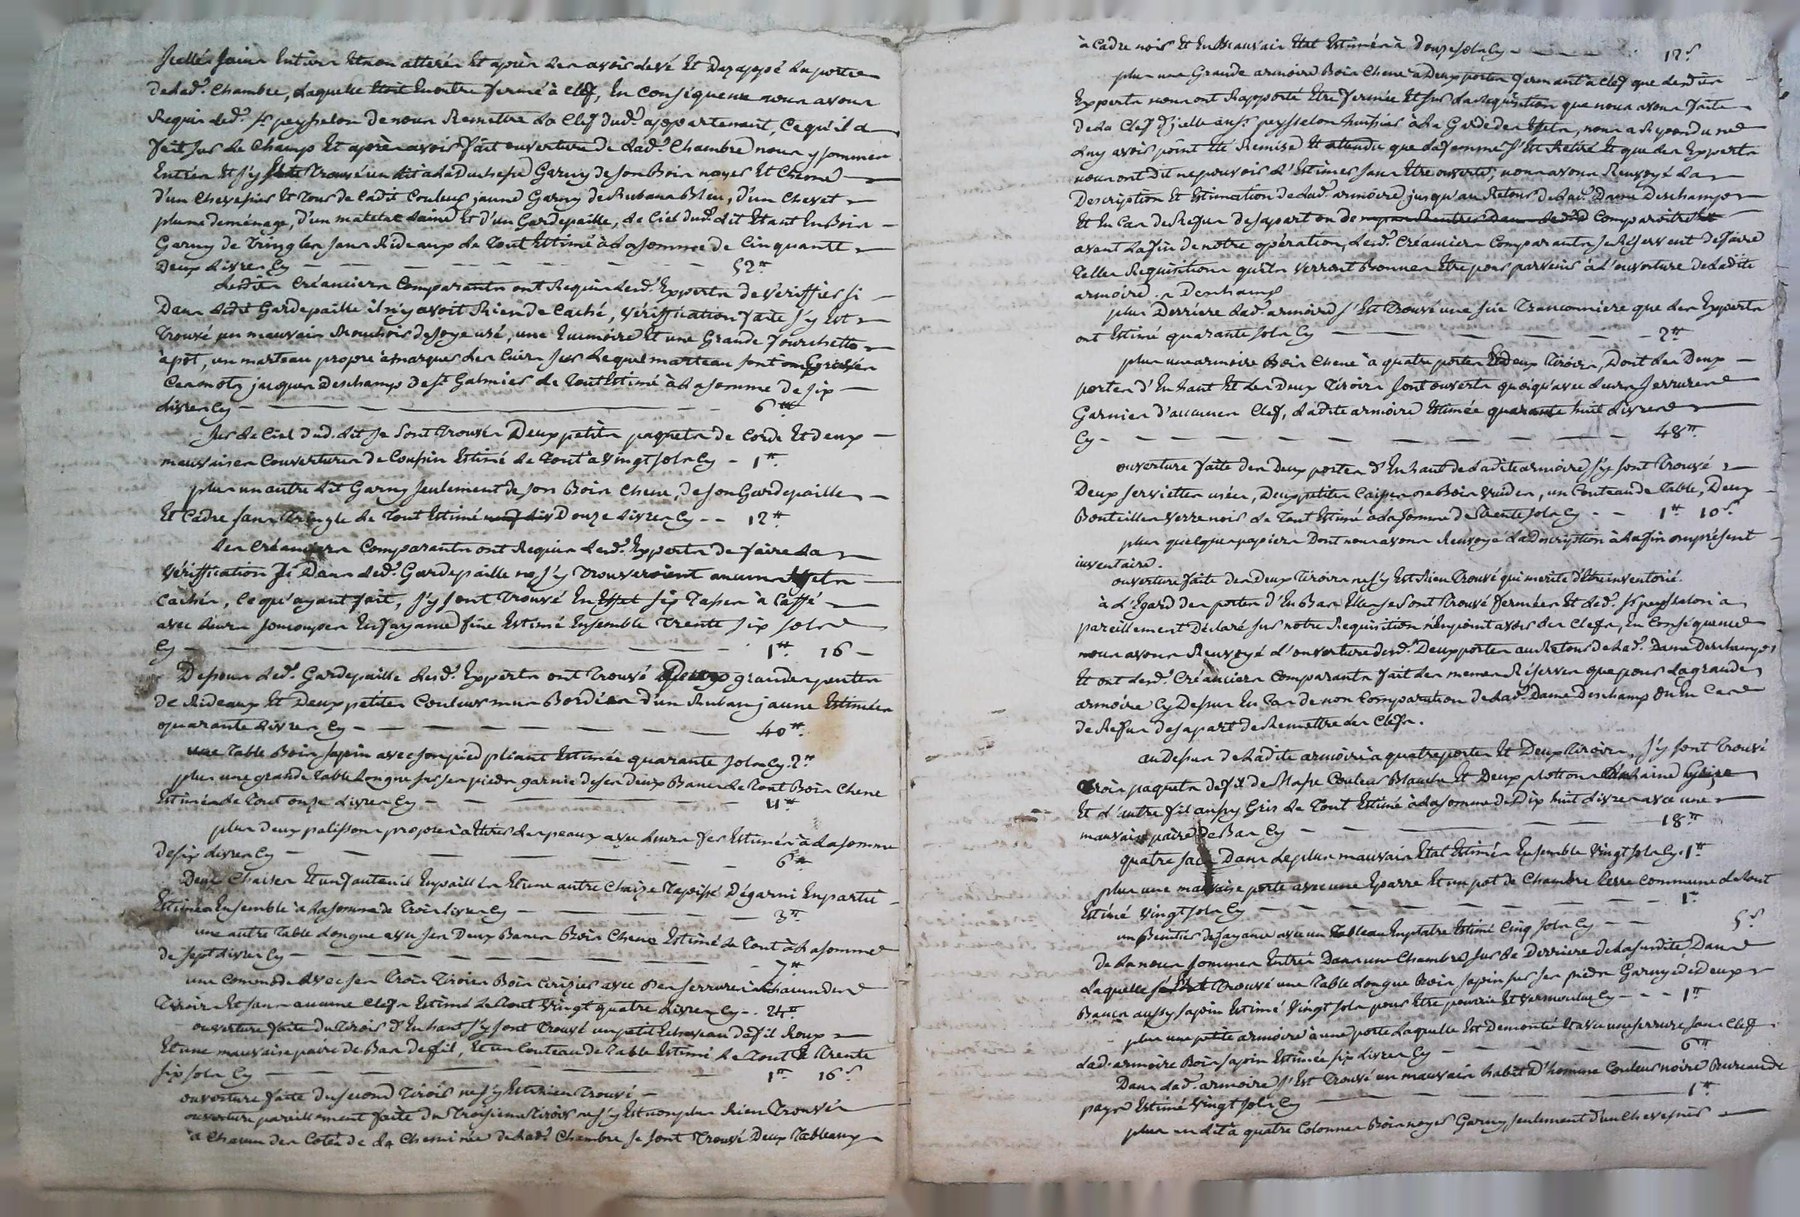 Icelles sains Entiers Et non altérés Et après les avoir levé Et Dapposé la porte
de lad.e Chambre, laquelle Etoit Encontre fermé à Clef, En Conséquence nous avons
Requis led.t Sr peysselon de nous Remettre la Clef dud.t appartement, Ce qu'il a
fait sur le Champ Et après avoir fait ouverture de lad.e Chambre nous y sommes
Entrés Et s'y Est Trouvé un lit à la Duchesse Garny de son Bois noyer Et Chene
d'un Chevessier Et Tour de Cadit Couleur jaune Garny de Ruban Bleu, d'un Chevet
plume de ménage, d'un matelat Laine Et d'un Gardepaille, le Ciel dud.t lit Etant En Bois
Garny de Tringles sans Rideaux le Tout Estimé à la somme de Cinquante
Deux Livres Cy 52tt
Lesdits Créanciers Comparants ont Requis lesd.ts Experts de Vériffier si
Dans ledit Gardepaille il n'y avoit Rien de Caché, Vériffication faite s'y Est
Trouvé un mauvais Mouchoir de soye usé, une Ecumoire Et une Grande fourchette
a pot, un marteau propre à marquer les Cuirs sur lequel marteau sont
Ces mots jacques Deschamps de St Galmier le Tout Estimé à la somme de six
Livres Cy 6tt
Sur le Ciel dud. lit se sont Trouvés Deux petits paquets de Corde Et deux
mauvaises Couvertures de Coussin Estimé le Tout à Vingt sols Cy 1tt
plus un autre lit Garny seulement de son Bois Chene, de son Gardepaille
Et Cadre sans Tringle le Tout Estimé Douze Livres Cy 12tt
Les Créanciers Comparants ont Requis lesd.ts Experts de faire la
Vériffication si Dans led.t Gardepaille ne s'y Trouveroient aucuns Effets
Cachés, Ce qu'ayant fait, s'y sont Trouvé En Effet six Tasses à Caffé
avec Leurs soucoupes En fayance fine Estimé Ensemble Trente six sols
Cy 1tt 16
Dessous led.t Gardepaille lesd.ts Experts ont Trouvé grandes pentes
de Rideaux Et Deux petites Couleur Bordées d'un Ruban jaune Estimées
quarante Livres Cy 40tt
une Table Bois sapin avec son pied pliant Estimée quarante sols Cy 2tt
plus une grande Table longue sur ses pieds garnie de ses deux Bancs le Tout Bois Chene
Estimés le Tout onze Livres Cy 11tt
plus deux palissons propres à Etirer les peaux avec leurs fers Estimés à la somme
de six Livres Cy 6tt
Deux Chaises Et un fauteuil Empaillés Et une autre Chaize Tapissé Dégarni En partie
Estimés Ensemble à la somme de Trois Livres Cy 3tt
une autre Table longue avec ses Deux Bancs Bois Chene Estimé le Tout à la somme
de sept Livres Cy 7tt
une Commode avec ses Trois Tiroirs Bois Cirizier avec des serrures à chacun des
Tiroirs Et sans aucune Clefs Estimé le Tout Vingt quatre Livres Cy 24tt
ouverture faite du Tiroir d'En haut s'y sont Trouvé un petit Echeveau de fil Roux
Et une mauvaise paire de Bas de fil, Et un Couteau de Table Estimé le Tout Trente
six sols Cy 1tt 16s
ouverture faite du second Tiroir ne s'y Est rien Trouvé
ouverture pareillement faite du Troisieme Tiroir ne s'y Est non plus Rien Trouvé
à Chacun des Cotés de la Cheminée de lad.e Chambre se sont Trouvé Deux Tableaux
à Cadre noir Et En Mauvais Etat Estimés à Douze sols Cy 12s
plus une Grande armoire Bois Chene à Deux portes fermant à Clef que lesdits
Experts nous ont Rapporté Etre fermée Et sur la Requisition que nous avons faite
de la Clef d'Icelle aud. Sr peysselon huissier à la Garde des Effets, nous a Repondu ne
luy avoir point Eté Remise Et attendu que la femme s'Est Retiré Et que les Experts
nous ont dit ne pouvoir l'Estimer sans Etre ouverte, nous avons Renvoyé la
Description Et Estimation de lad.e armoire jusqu'au Retour de lad. Dame Deschamps
Et En Cas de Refus de sa part ou de Comparoitre
avant la fin de notre opération, lesd.ts Créanciers Comparants se Réservent de faire
Telles Requisitions qu'ils verront Bonnes Etre pour parvenir à l'ouverture de ladite
armoire. Deschamps
plus Derriere lad.e armoire s'Est Trouvé une scie Tranconniere que les Experts
ont Estimé quarante sols Cy 2tt
plus une armoire Bois Chene à quatre portes Et deux Tiroirs, Dont les Deux
portes d'En haut Et les Deux Tiroirs sont ouverts quoiqu'avec leurs serrures
Garnies d'aucunes Clefs, ladite armoire Estimée quarante huit Livres
Cy 48tt
ouverture faite des Deux portes d'En haut de ladite armoire s'y sont Trouvé
Deux serviettes usées, Deux petites Caisses Bois Vuides, un Couteau de Table, Deux
Bouteilles verre noir le Tout Estimé à la somme de Trente sols Cy 1tt 10s
plus quelques papiers Dont nous avons Renvoyé la Description à la fin du présent
inventaire.
ouverture faite des Deux Tiroirs ne s'y Est Rien Trouvé qui merite d'Etre inventorié.
à L'Egard des portes d'En Bas Elles se sont Trouvé fermées Et led.t Sr peysselon a
pareillement Déclaré sur notre Requisition n'En point avoir les Clefs, En Conséquence
nous avons Renvoyé l'ouverture desd.tes Deux portes au Retour de lad.e Dame Deschamps,
Et ont lesd.ts Créanciers Comparants fait les memes Réserves que pour la grande
armoire Cy Dessus En Cas de non Comparution de lad.e Dame Deschamps ou En Cas
de Refus de sa part de Remettre les Clefs.
au dessus de ladite armoire à quatre portes Et Deux Tiroirs, s'y sont Trouvé
Trois paquets de fil de Couleur Blanche Et Deux plottons
Et d'autre fil aussy Gris le Tout Estimé à la somme de Dix huit Livres avec une
mauvaise paire de Bas Cy 18tt
quatre sacs Dans le plus mauvais Etat Estimés Ensemble Vingt sols Cy 1tt
plus une mauvaise porte avec une Eparre Et un pot de Chambre terre Commune le Tout
Estimé Vingt sols Cy 1tt
un Benitier de fayance avec un Tableau Emplatre Estimé Cinq sols Cy 5s
de la nous sommes Entrés Dans une Chambre sur le Derriere de la susdite, Dans
laquelle s'Est Trouvé une Table longue Bois sapin sur ses pieds Garnye de Deux
Bancs aussy sapin Estimé Vingt sols pour Etre pourrie Et vermoulue Cy 1tt
plus une petite armoire à une porte laquelle Est Demontée Et avec une serrure sans Clef
lad. armoire Bois sapin Estimée six Livres Cy 6tt
Dans lad.e armoire s'Est Trouvé un mauvais habit d'homme Couleur noire Bure du
pays Estimé Vingt sols Cy 1tt
plus un lit à quatre Colonnes Bois noyer Garny seulement d'un Chevessier